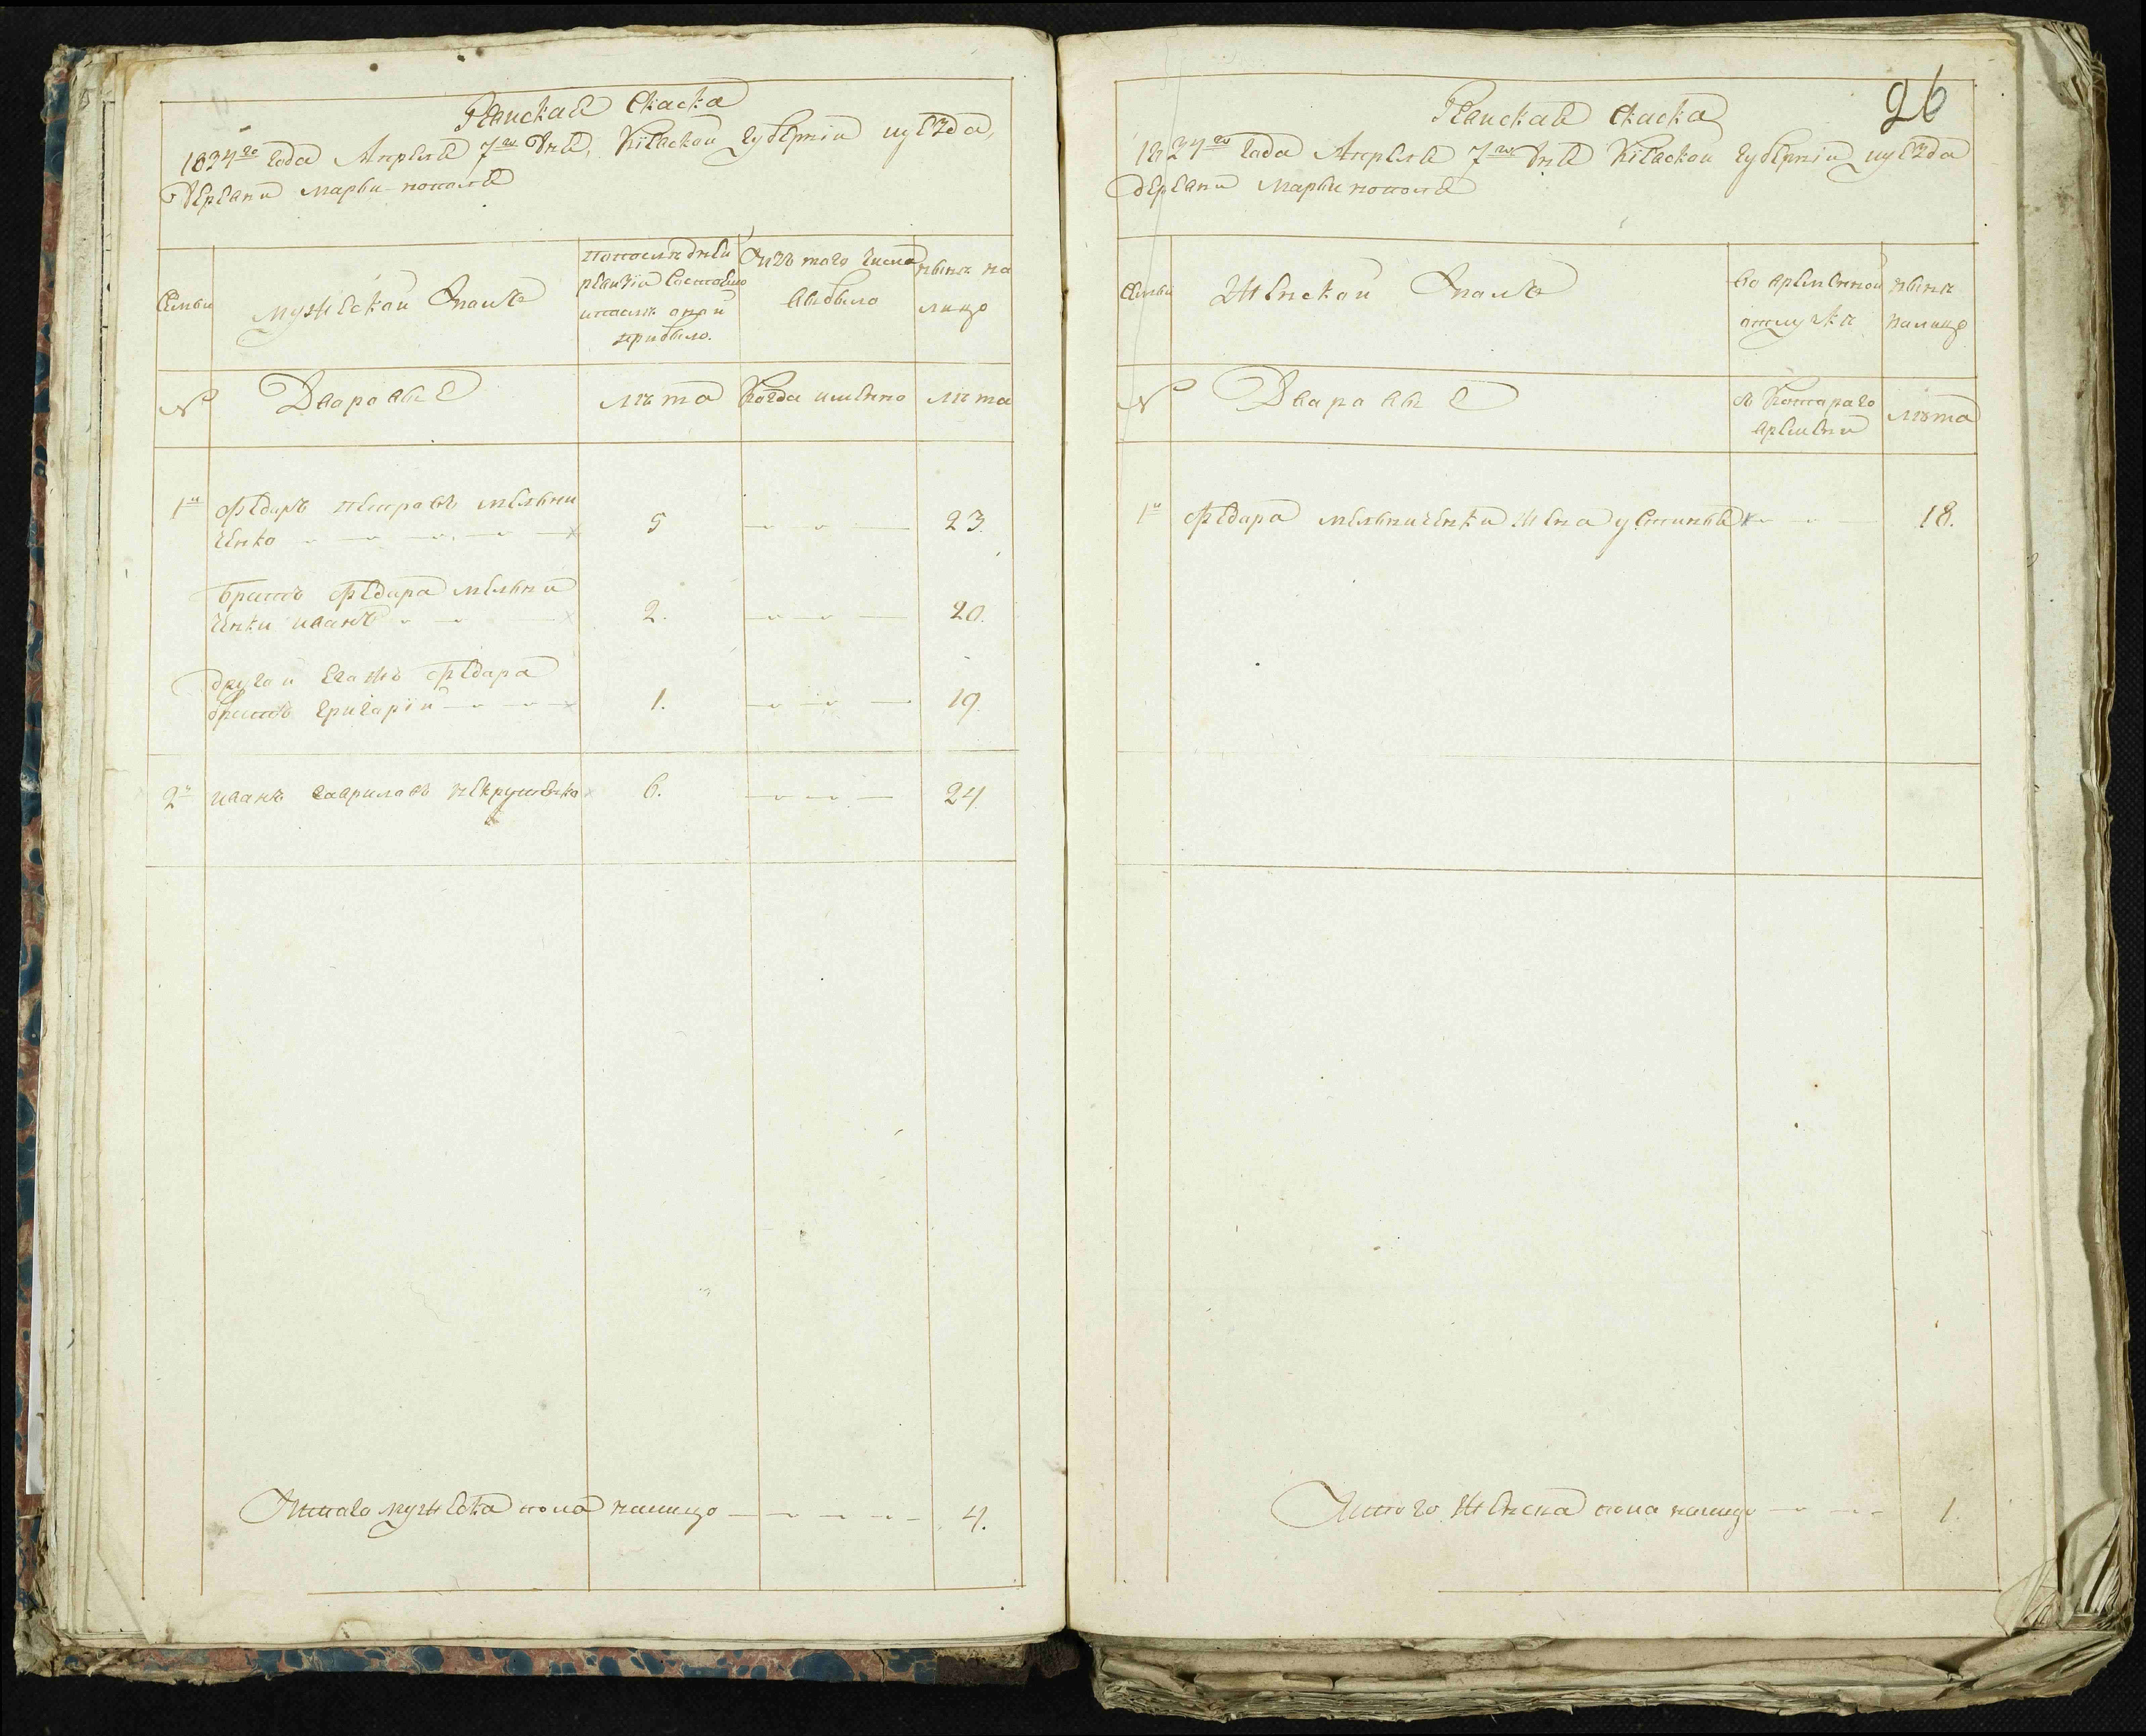 Ревиская скаска
1834го года Апреля 7го дня, Киевской губернии и уезда,
деревни марьи-нополя
Семьи
мужескои Полъ
попоследнеи
ревизіи Состояло
ипосле онои
прибыло.
Изъ того числа
выбыло
ныне на
лицо
№
Дваравые
лета
Когда имено
лета
1й
Федаръ петравъ мельни
ченко
5
23.
братъ Федара мельни
ченки иванъ
2.
20.
другаи егожъ Федара
братъ григарій
1.
19.
2й
иванъ гаврилавъ
6.
24
Итаго мужеска пола налицо
4.
26
Ревиская скаска
1834го года Апреля 7го дня Киевскои губернии и уезда
деревни марьинополя
Семьи
Женскои Полъ
во временнои
отлучке
ныне
налицо
№
Дваравые
с Котараго
времени
лета
1й
Федара мельниченки жена устинья
18.
Итого женска пола налицо
1.